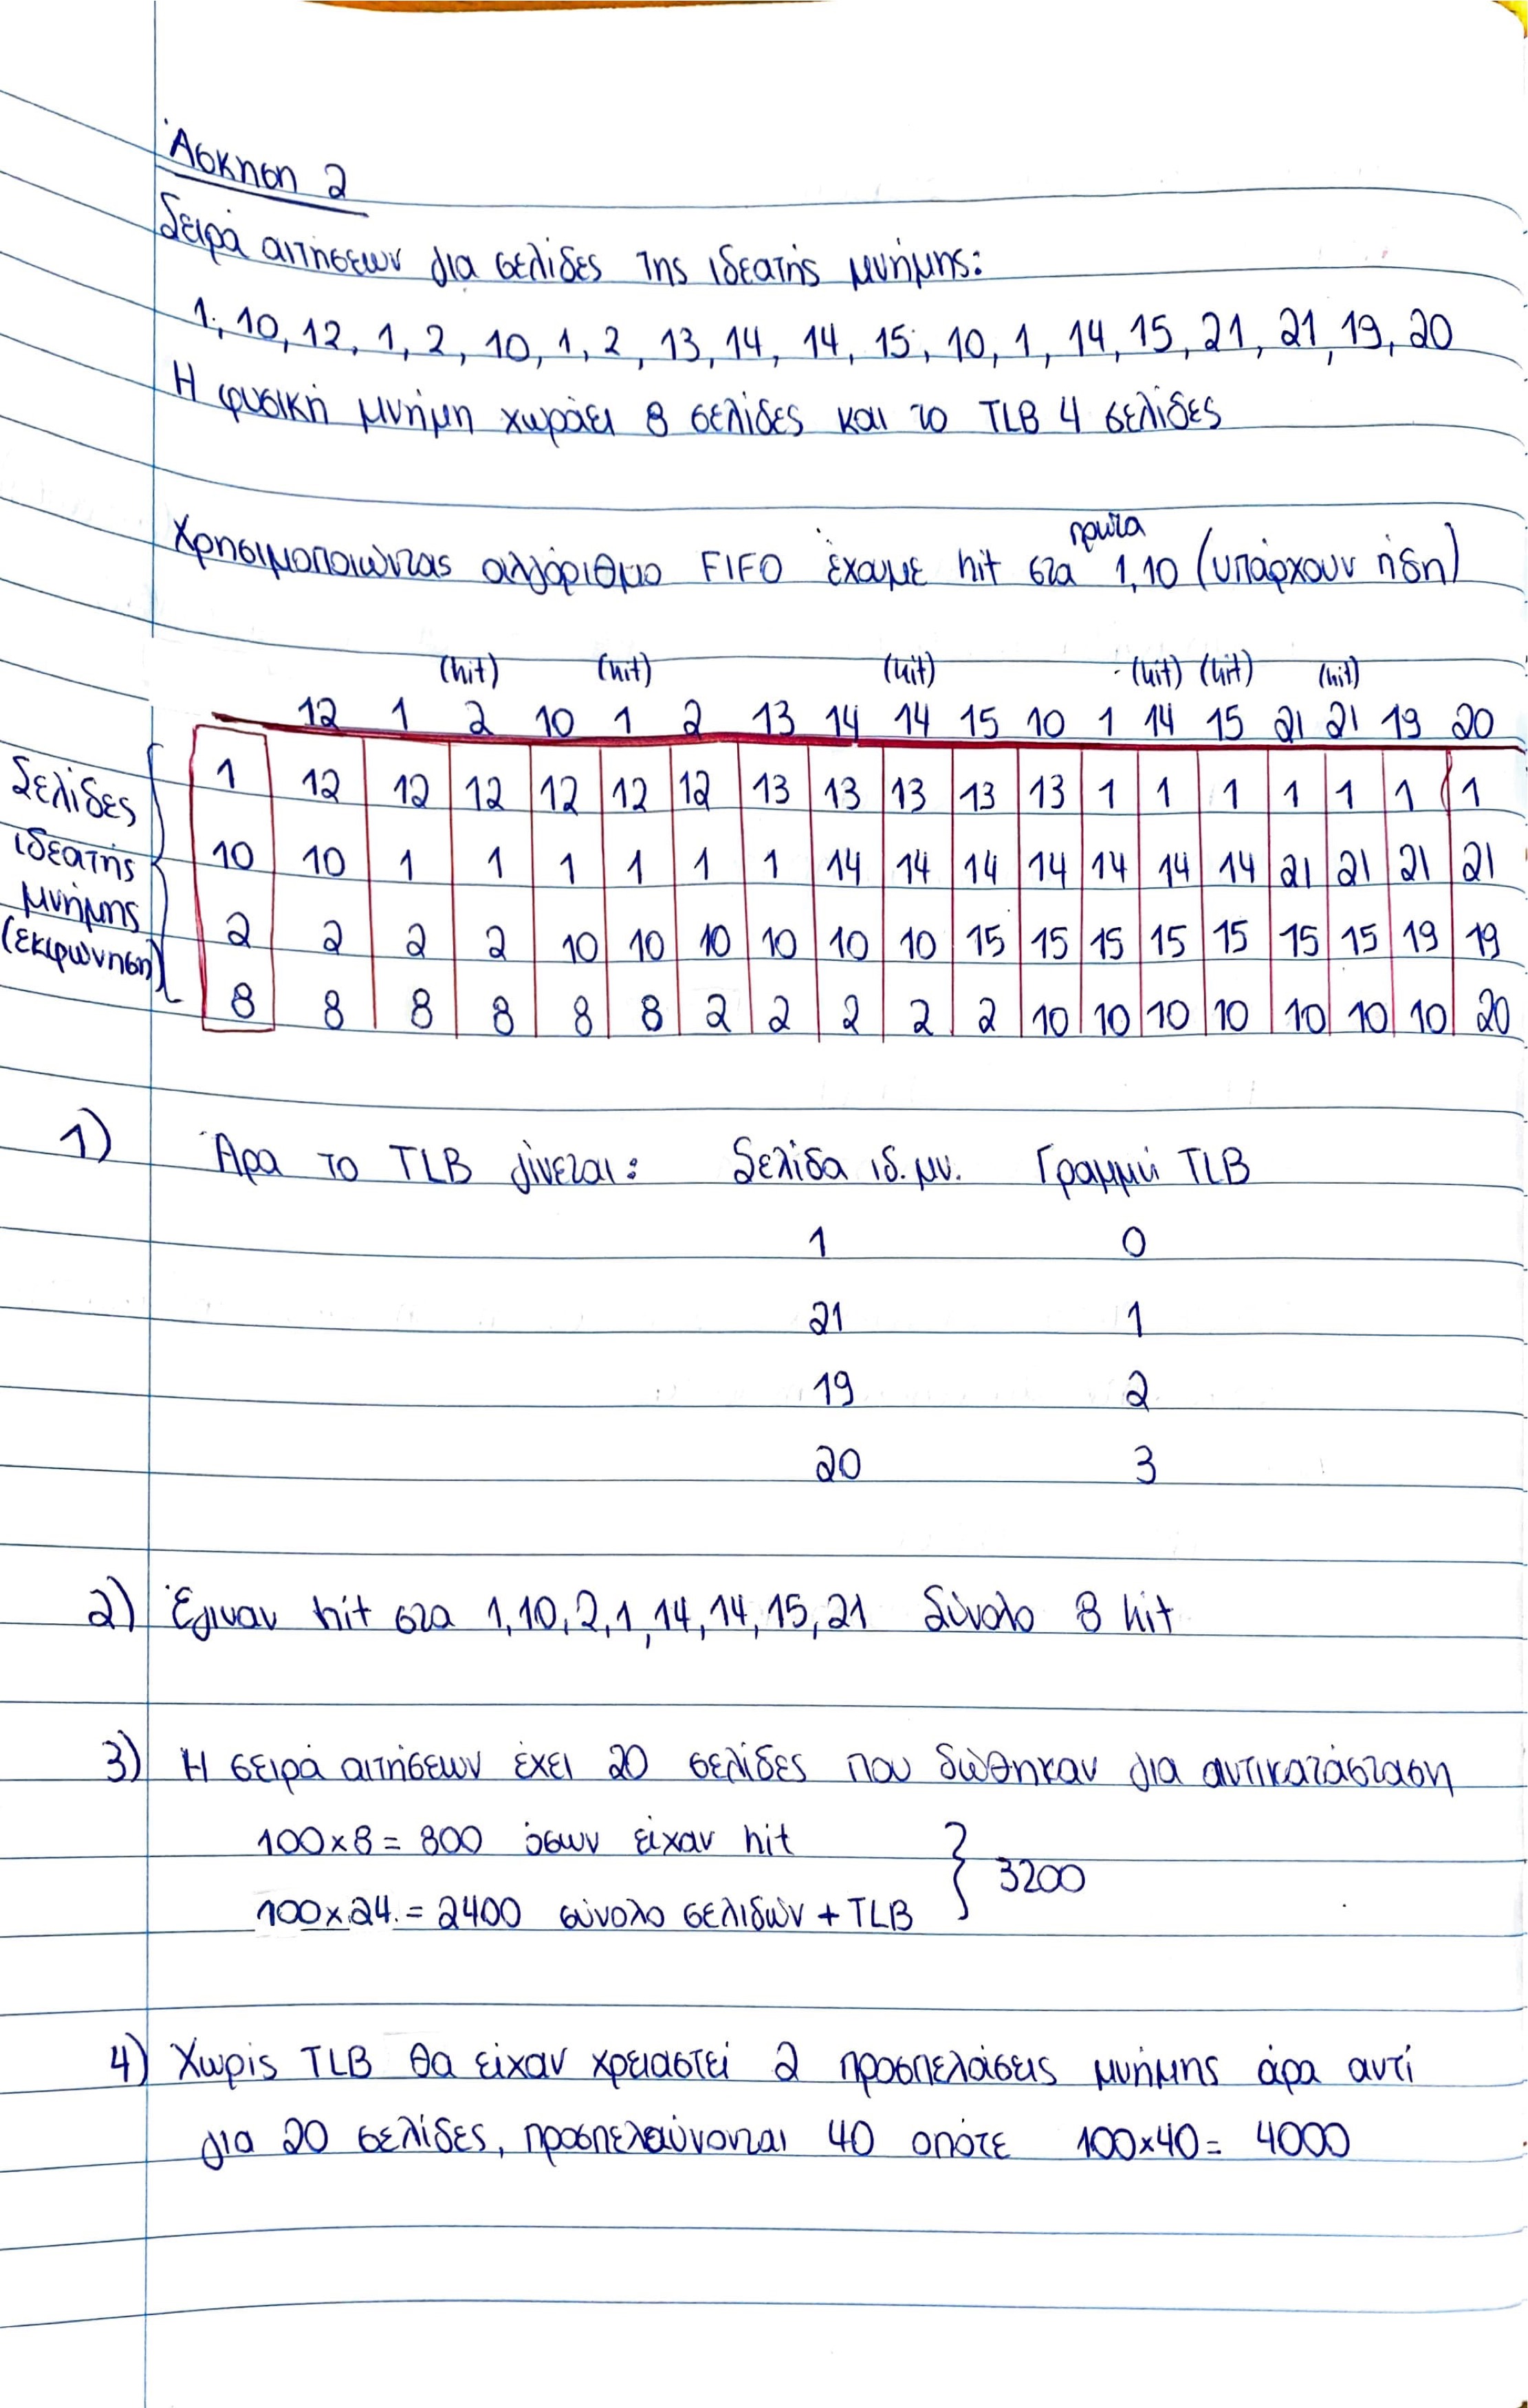 Άσκηση 2
Σειρά αιτήσεων για σελίδες της ιδεατής μνήμης:
1, 10, 12, 1, 2, 10, 1, 2, 13, 14, 14, 15, 10, 1, 14, 15, 21, 21, 19, 20
Η φυσική μνήμη χωράει 8 σελίδες και το TLB 4 σελίδες
Χρησιμοποιώντας αλγόριθμο FIFO έχουμε hit στα πρώτα 1,10 (υπάρχουν ήδη)
(hit) (hit) (hit) (hit) (hit) (hit)
12 1 2 10 1 2 13 14 14 15 10 1 14 15 21 21 19 20
Σελίδες 1 12 12 12 12 12 12 13 13 13 13 13 1 1 1 1 1 1 1
ιδεατής 10 10 1 1 1 1 1 1 14 14 14 14 14 14 14 21 21 21 21
μνήμης
(εκφώνηση) 2 2 2 2 10 10 10 10 10 10 15 15 15 15 15 15 15 19 19
8 8 8 8 8 8 2 2 2 2 2 10 10 10 10 10 10 10 20
1) Άρα το TLB γίνεται: Σελίδα ιδ. μν. Γραμμή TLB
1 0
21 1
19 2
20 3
2) Έγιναν hit στα 1,10,2,1,14,14,15,21 Σύνολο 8 hit
3) Η σειρά αιτήσεων έχει 20 σελίδες που δώθηκαν για αντικατάσταση
100×8 = 800 όσων είχαν hit
} 3200
100×24 = 2400 σύνολο σελιδών + TLB
4) Χωρίς TLB θα είχαν χρειαστεί 2 προσπελάσεις μνήμης άρα αντί
για 20 σελίδες, προσπελαύνονται 40 οπότε 100×40 = 4000